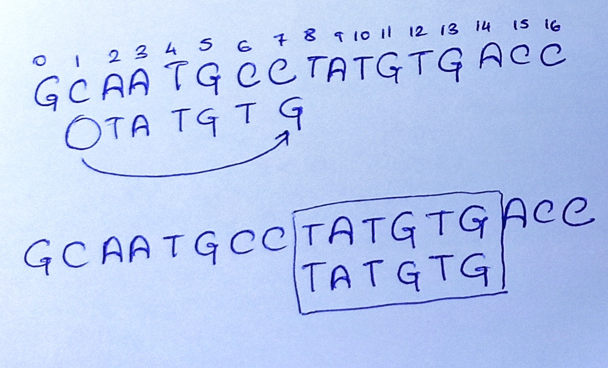 0 1 2 3 4 5 6 7 8 9 10 11 12 13 14 15 16
G C A A T G C C T A T G T G A C C
T A T G T G
G C A A T G C C T A T G T G A C C
T A T G T G